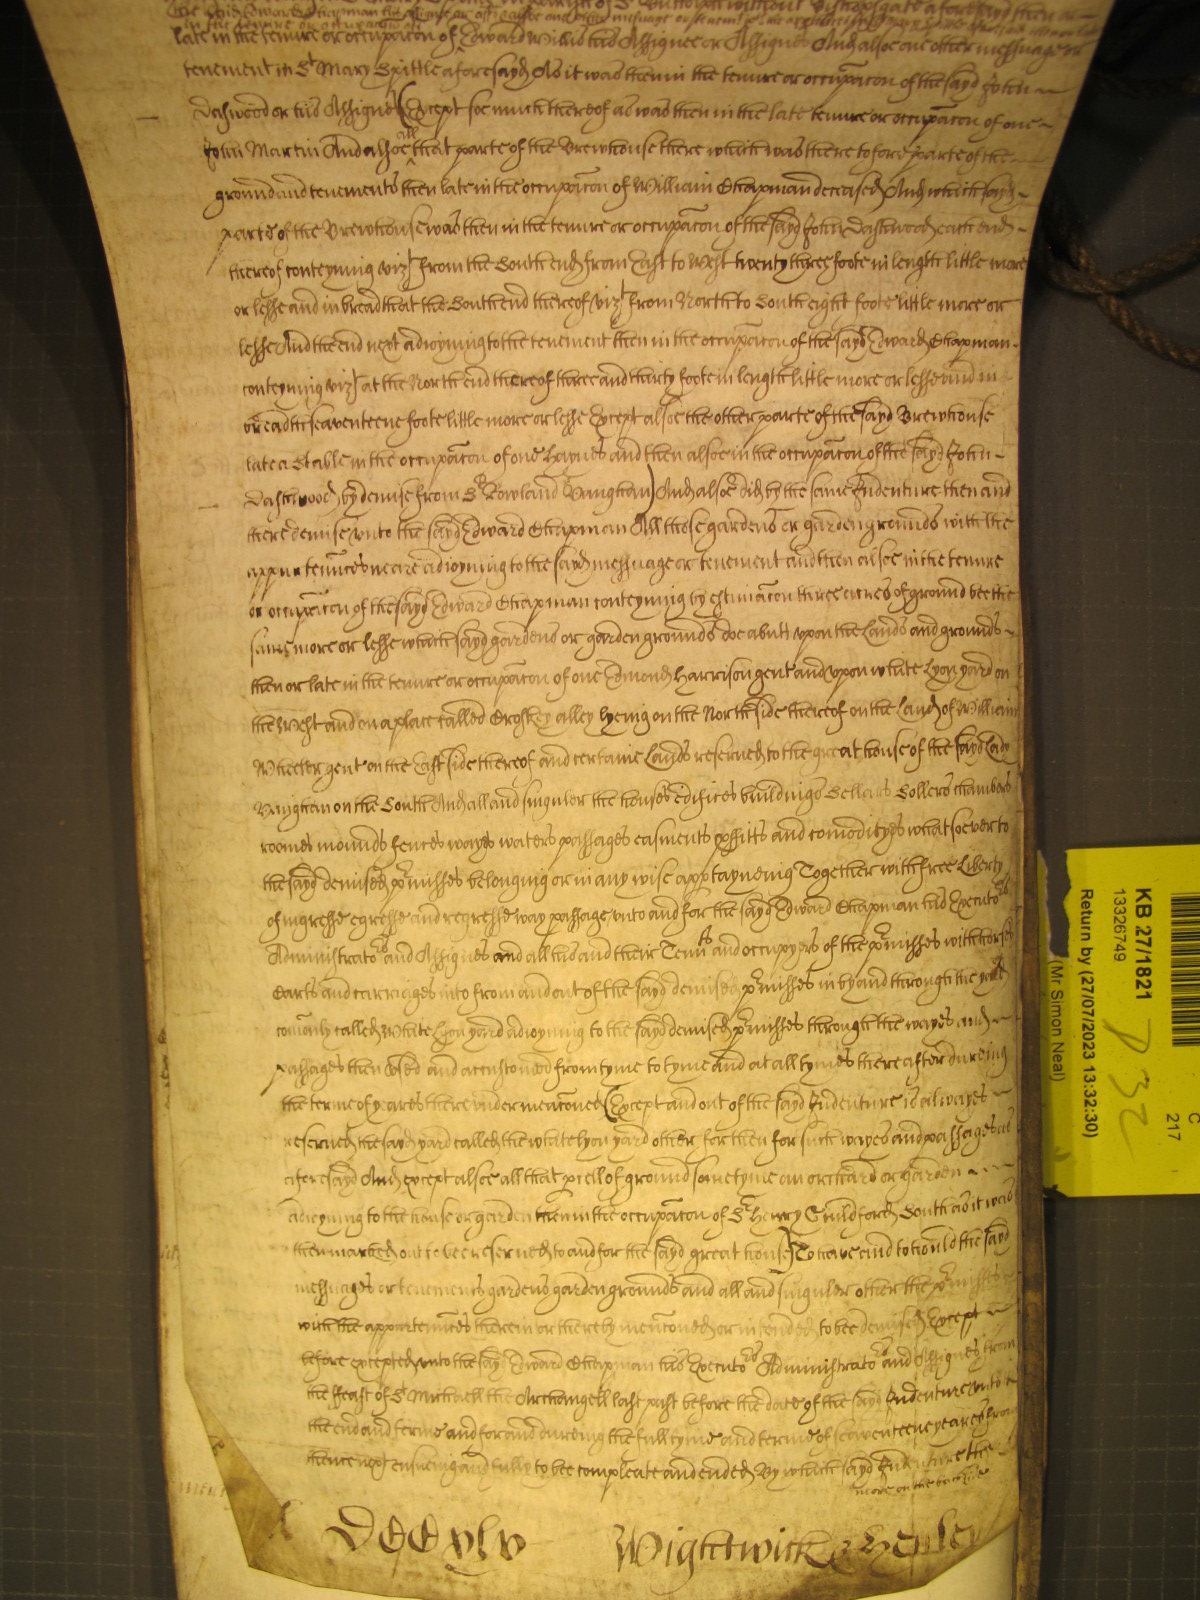 late in the tenure or occupac̃on of Edward Willis his Assignee or Assignes And alsoe one other messuage or
tenement in St Mary Spittle aforesayd As it was then in the tenure or occupac̃on of the sayd John
Dashwood or his Assignes (Except soe much thereof as was then in the late tenure or occupac̃on of one
John Martin And alsoe all that parte of the Brewhouse there which was there tofore parte of the
ground and tenements then late in the occupac̃on of William Chapman deceased And which sayd
parte of the Brewhouse was then in the tenure or occupac̃on of the sayd John Dashwood each end
thereof conteyning vizt from the South end from East to West twenty three foote in length little more
or lesse and in breadth at the South end thereof vizt from North to South eight foote little more or
lesse And the end next adioyning to the tenement then in the occupac̃on of the sayd Edward Chapman
conteyning vizt at the North end thereof three and thirty foote in length little more or lesse and in
breadth seaventeene foote little more or lesse Except alsoe the other parte of the sayd Brewhouse
late a Stable in the occupac̃on of one Haynes and then alsoe in the occupac̃on of the sayd John
Dashwood by demise from Sr Rowland Vaughan) And alsoe did by the same Indenture then and
there demise unto the sayd Edward Chapman All those gardens or garden grounds with the
appurtenñces neare adioyning to the sayd messuage or tenement and then alsoe in the tenure
or occupac̃on of the sayd Edward Chapman conteyning by estimac̃on three acres of ground bee the
same more or lesse which sayd gardens or garden grounds doe abutt upon the Lands and grounds
then or late in the tenure or occupac̃on of one Edmond Harrison gent and upon white Lyon yard on
the West and on a place called Croskey alley lyeing on the North side thereof on the Land of William
Wheeler gent on the East side thereof and certaine Lands reserved to the great house of the sayd Lady
Vaughan on the South And all and singuler the houses edifices buildings Sellars Sollers chambers
roomes mounds fences wayes waters passages easments p̱fitts and comodityes whatsoever to
the sayd demised p̃misses belonging or in any wise apptayneing Together with free Liberty
of ingresse egresse and regresse way passage unto and for the sayd Edward Chapman his Executors
Administrators and Assignes and all his and their Tennts and occupyers of the p̃misses with horses
Carts and carriages into from and out of the sayd demised p̃misses in by and through the yard
comonly called White Lyon yard adioyning to the sayd demised p̃misses through the wayes and
passages then used and accustomed from tyme to tyme and at all tymes thereafter dureing
the terme of yeares there under menc̃oned (Except and out of the sayd Indenture is alwayes
reserved the sayd yard called the white lyon yard other for then for such wayes and passages as
aforesayd And except alsoe all that p̱cell of ground sometyme an orchard or garden
adioyning to the house or garden then in the occupac̃on of Sr Henry Guildford South as it was
then marked out to bee reserved to and for the sayd great house) To have and to hould the sayd
messuages or tenements gardens garden grounds and all and singuler other the p̃misses
with the appurtenñces therein or thereby menc̃oned or intended to bee demised Except
before excepted unto the sayd Edward Chapman his Executors Administrators and Assignes from
the Feast of St Michaell the Archangell last past before the date of the sayd Indenture unto
the end and terme and for and dureing the full tyme and terme of seaventeene yeares from
thence next ensueing and fully to bee compleate and ended By which sayd Indenture the
more on the backside
DCCxlv Wightwick & Henley
KB 27/1821
13326749
Return by (27/07/2023 13:32:30)
(Mr Simon Neal)
C
217